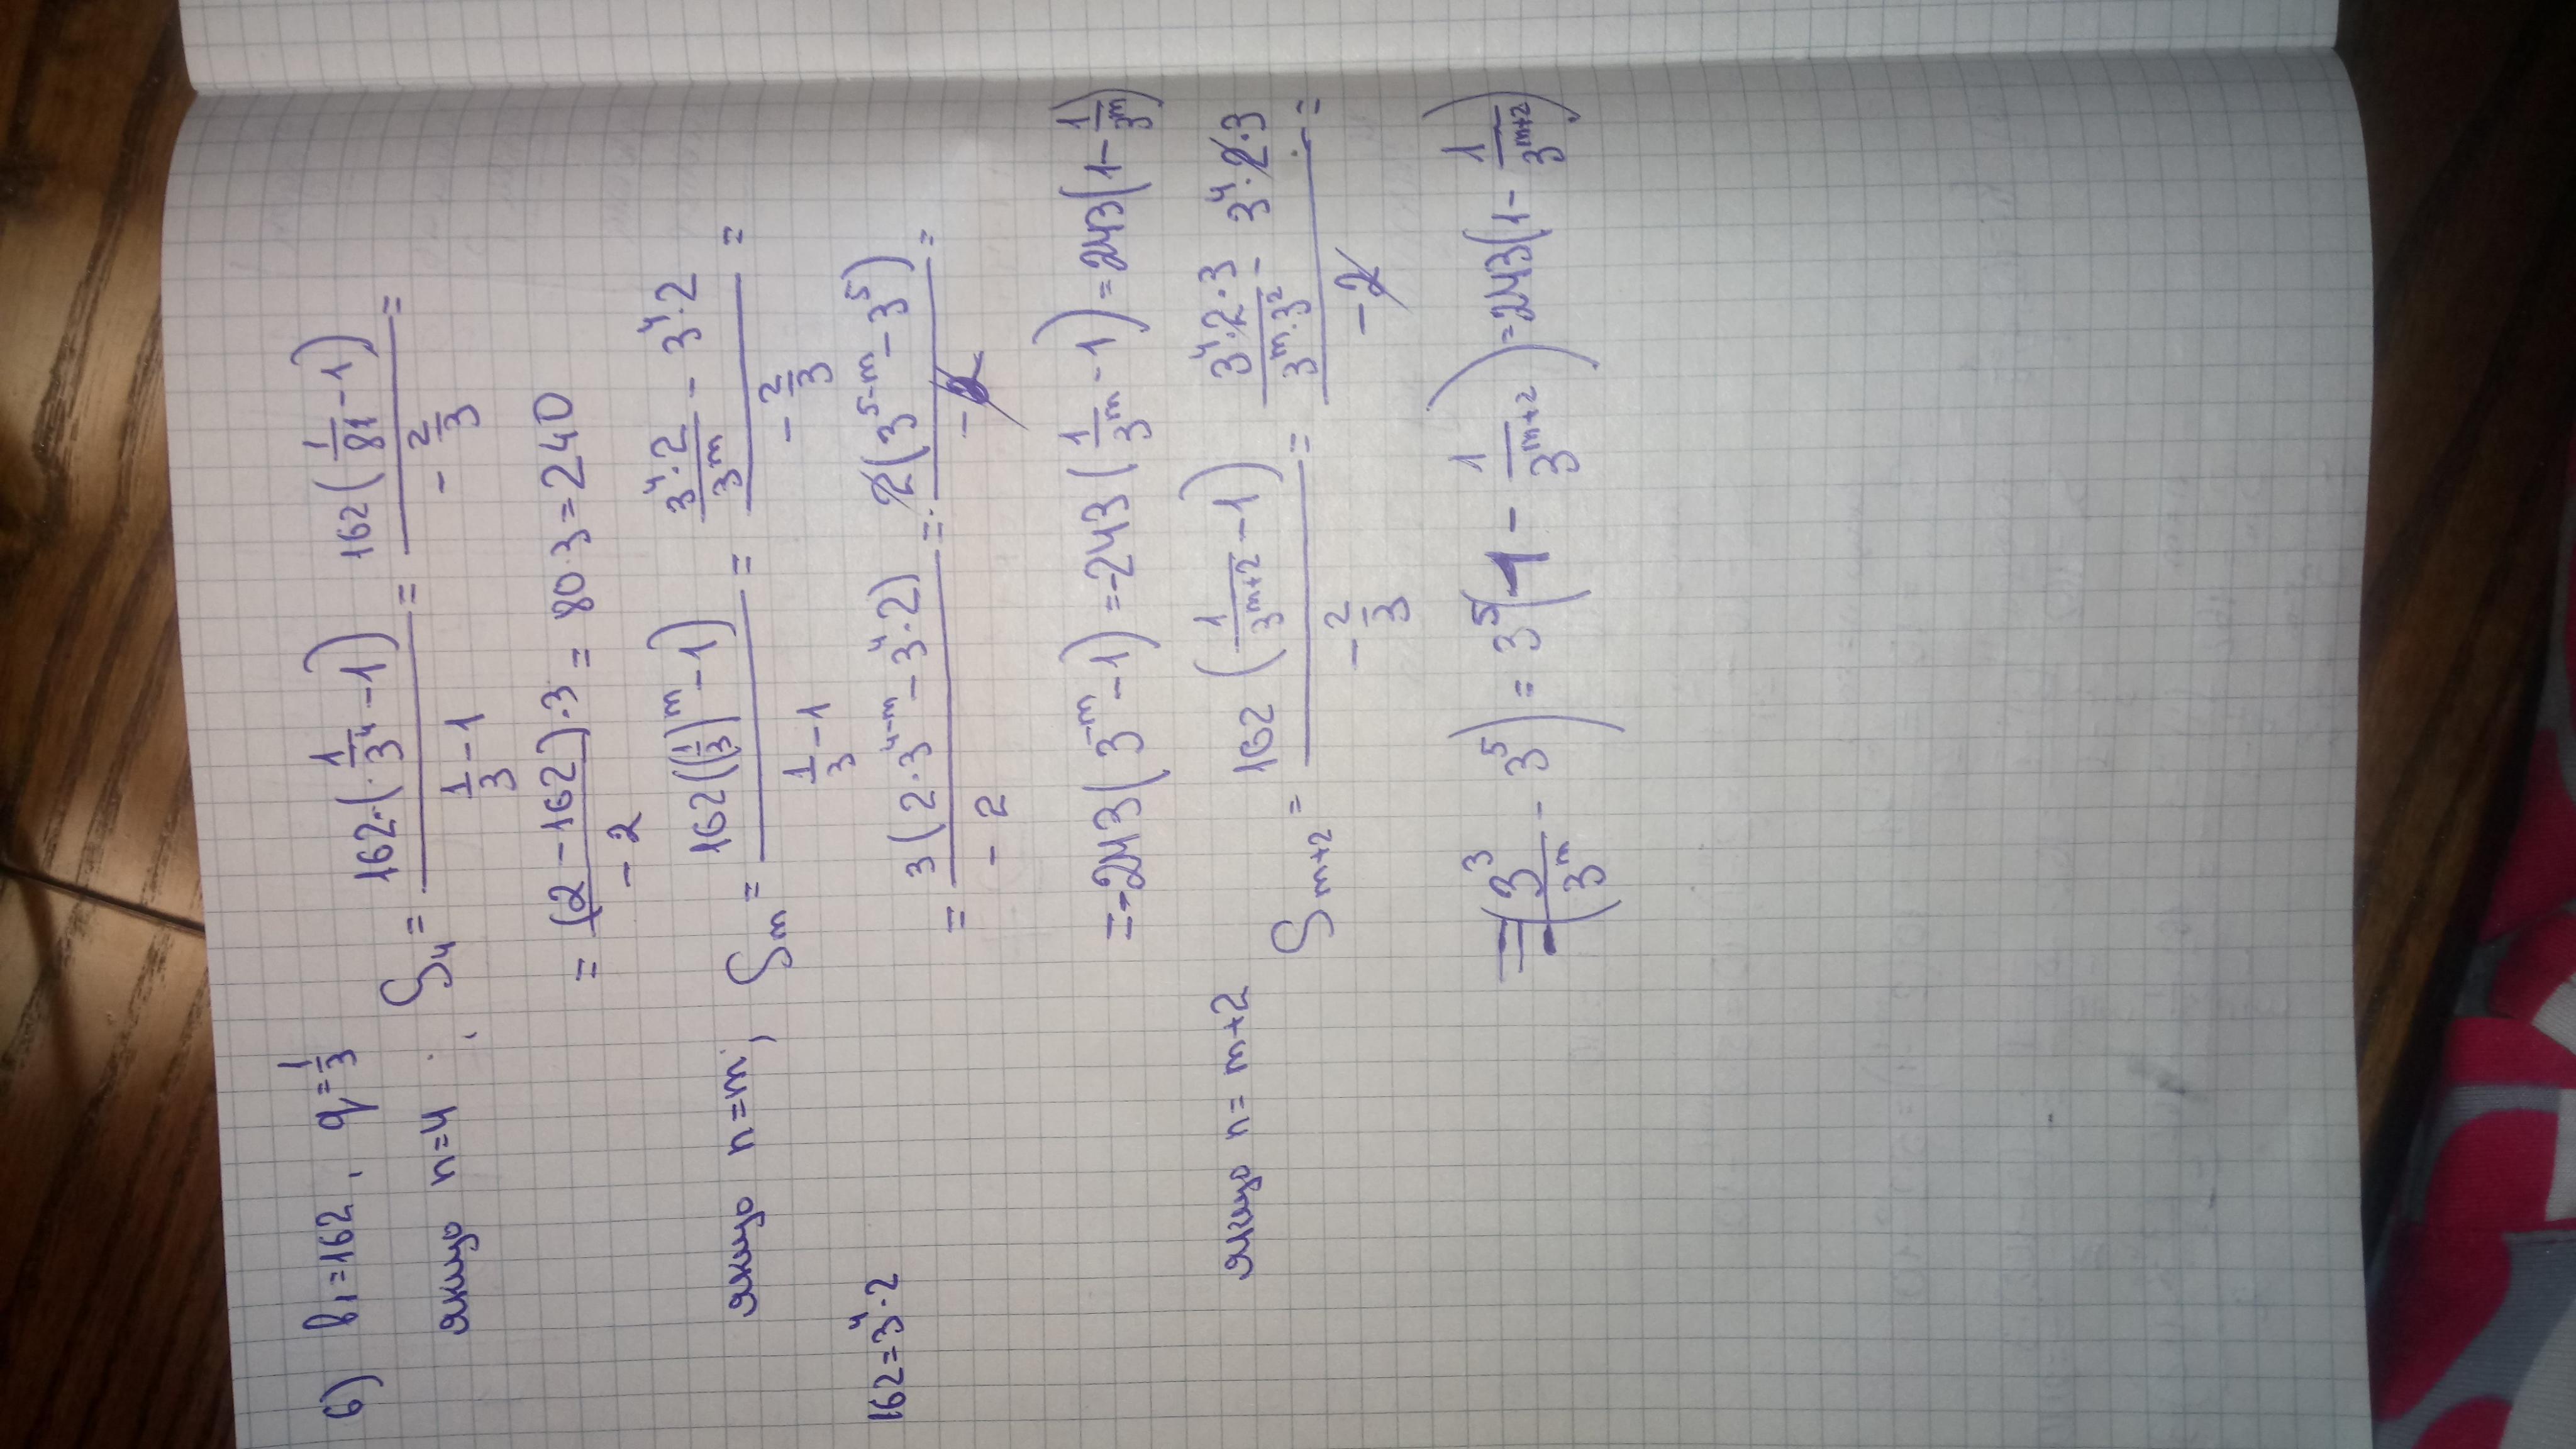 6) b₁=162, q=1/3
якщо n=4, S₄ = 162·(1/3⁴ - 1) / (1/3 - 1) = 162(1/81 - 1) / (-2/3) =
= (2-162)·3 / -2 = 80·3 = 240
якщо n=m, Sₘ = 162((1/3)ᵐ - 1) / (1/3 - 1) = (3⁴·2/3ᵐ - 3⁴·2) / (-2/3) =
162=3⁴·2 = 3(2·3⁴⁻ᵐ - 3⁴·2) / -2 = 2(3⁵⁻ᵐ - 3⁵) / -2 =
= -243(3⁻ᵐ - 1) = -243(1/3ᵐ - 1) = 243(1 - 1/3ᵐ)
якщо n=m+2 Sₘ₊₂ = 162(1/3ᵐ⁺² - 1) / (-2/3) = (3⁴·2·3/(3ᵐ·3²) - 3⁴·2·3) / -2 =
= -(3³/3ᵐ - 3⁵) = 3⁵(1 - 1/3ᵐ⁺²) = 243(1 - 1/3ᵐ⁺²).